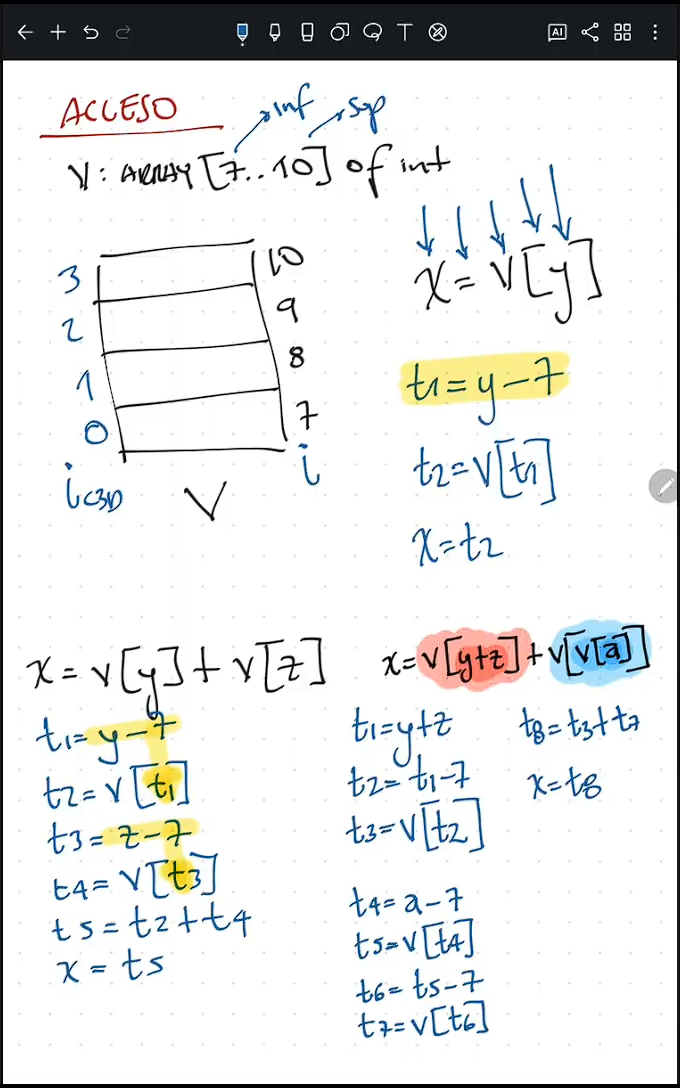 AI
ACCESO
inf
sup
V: ARRAY [7..10] of int
3
2
1
0
iC3D
10
9
8
7
i
V
x = v[y]
t1 = y - 7
t2 = v[t1]
x = t2
x = v[y] + v[z]
t1 = y - 7
t2 = v[t1]
t3 = z - 7
t4 = v[t3]
t5 = t2 + t4
x = t5
x = v[y+z] + v[v[a]]
t1 = y+z
t2 = t1 - 7
t3 = v[t2]
t4 = a - 7
t5 = v[t4]
t6 = t5 - 7
t7 = v[t6]
t8 = t3 + t7
x = t8